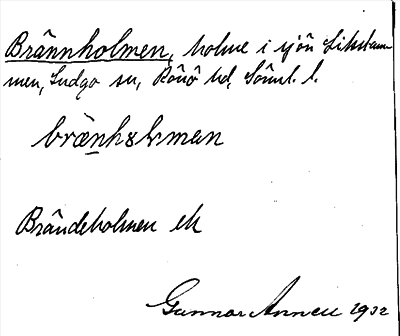 Brännholmen, holme i sjön Likstam-
men, Ludgo sn, Rönö hd, Söml. l.
Brändeholmen ek
Gunnar Annell 1932